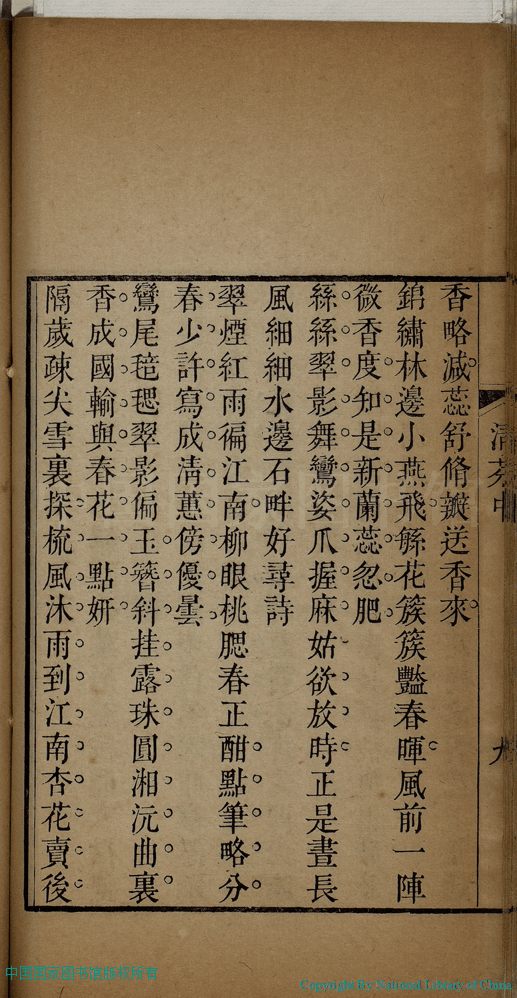 香略減蕊舒脩瓣送香來
錦繡林邊小燕飛緜花簇簇豔春暉風前一陣
微香度知是新蘭蕊忽肥
絲絲翠影舞鸞姿爪握麻姑欲放時正是晝長
風細細水邊石畔好尋詩
翠煙紅雨徧江南柳眼桃腮春正酣點筆略分
春少許寫成淸蕙傍優曇
鸞尾毰毸翠影偏玉簪斜挂露珠圓湘沅曲裏
香成國輸與春花一點妍
隔歲疎尖雪裏探梳風沐雨到江南杏花賣後
中国国家图书馆版权所有
Copyright By National Library of China